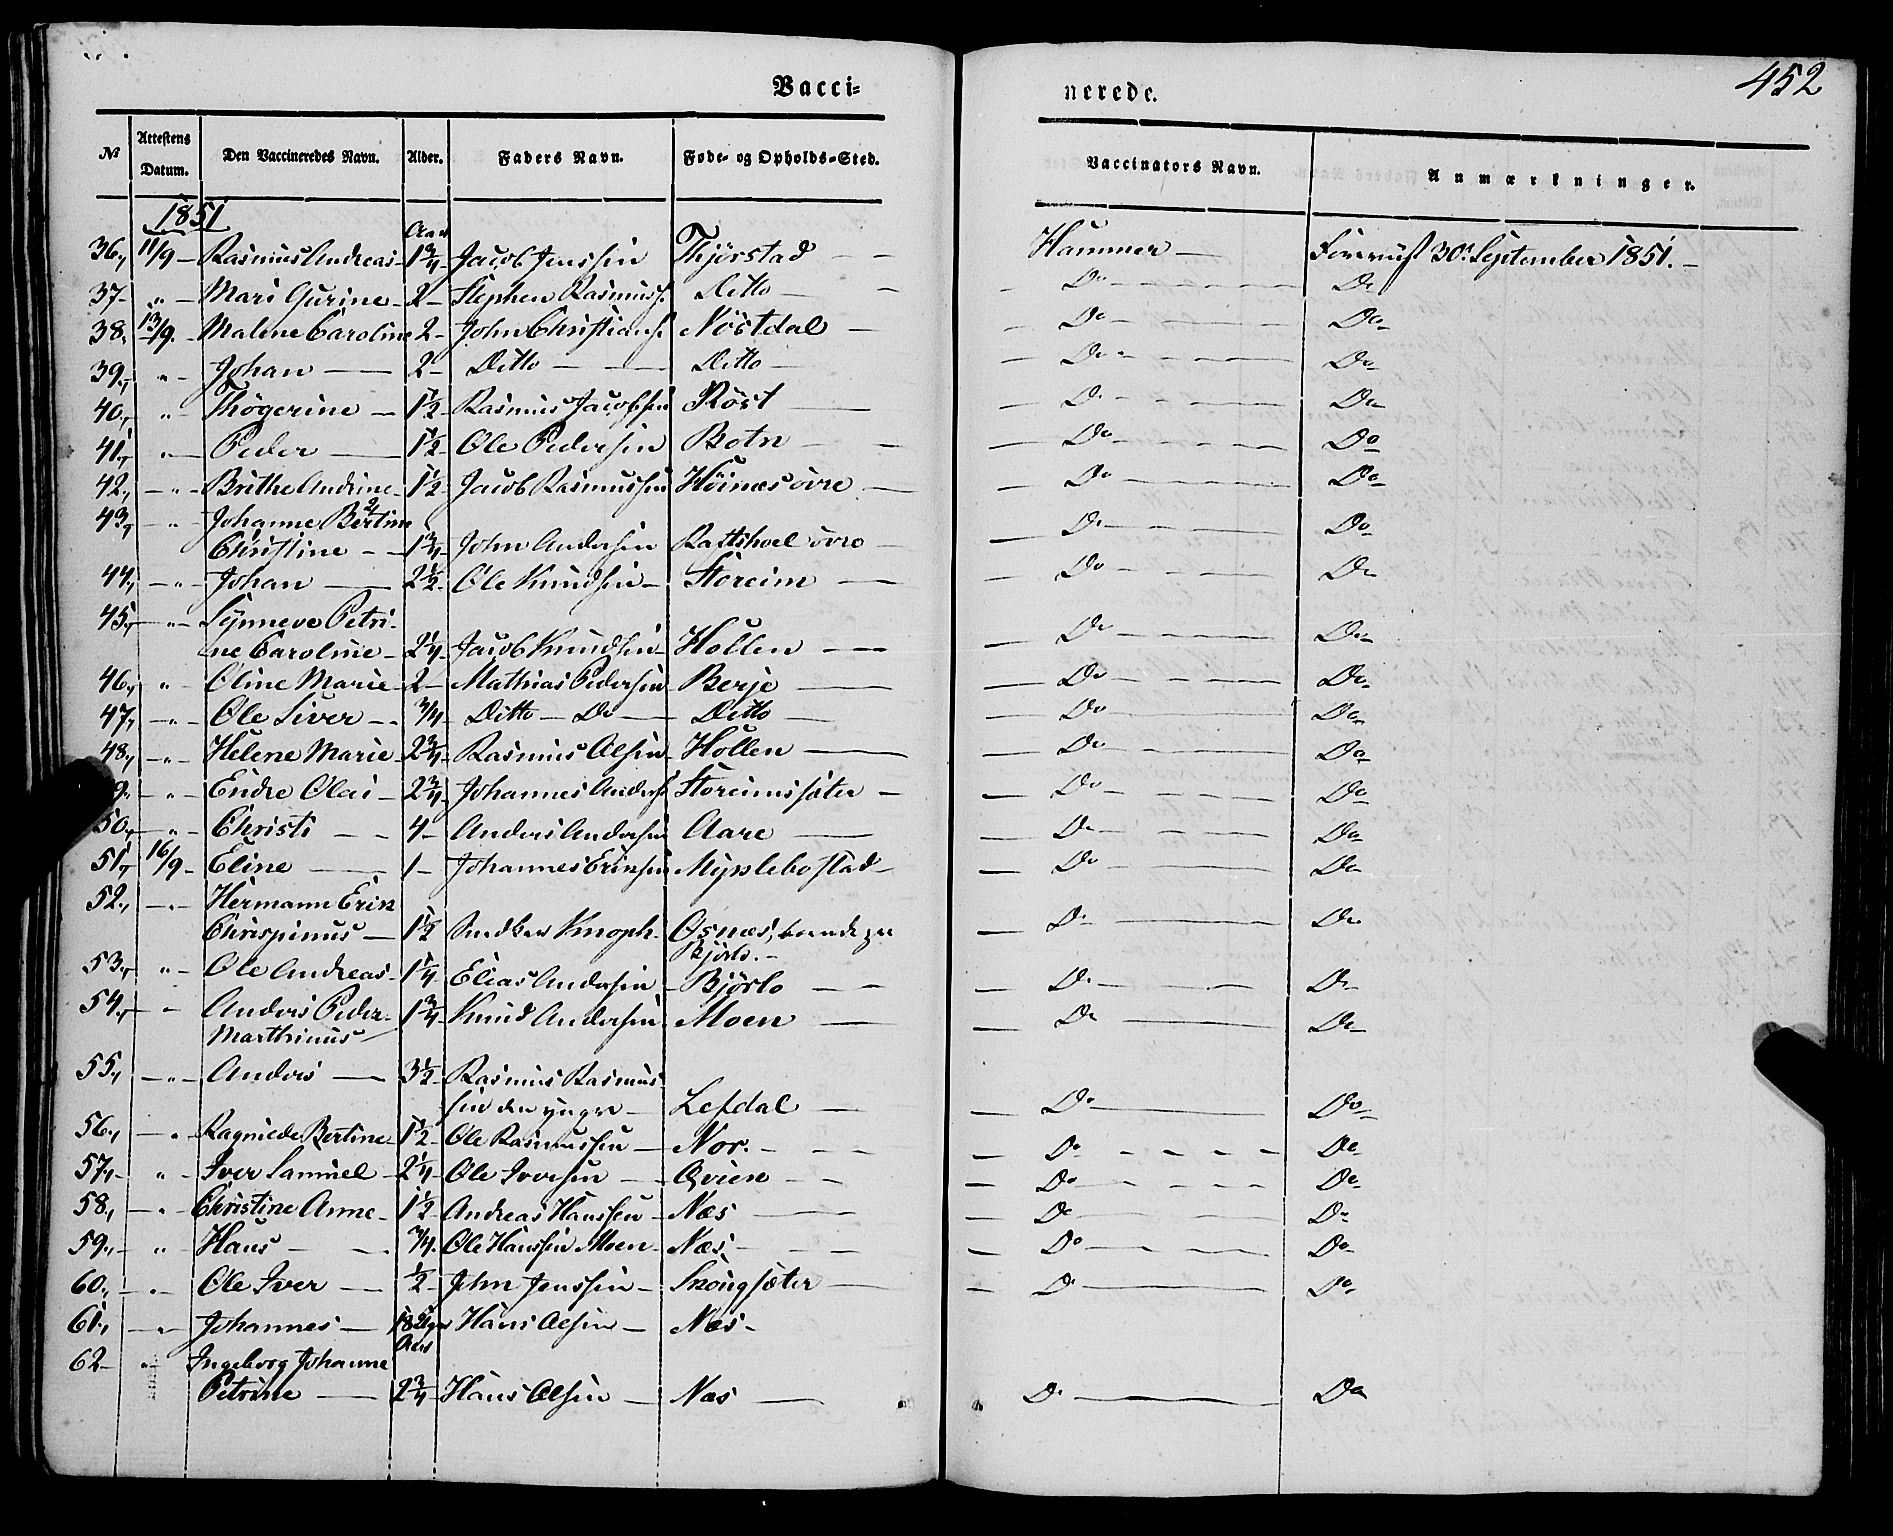 452
Vacci-
nerede.
№ Attestens Datum. Den Vaccineredes Navn. Alder. Faders Navn. Føde- og Opholds-Sted. Vaccinators Navn. Anmærkninger.
1851
Aar
36, 11/9 - Rasmus Andreas - 1 3/4 Jacob Jenssen Thjørstad - - Hammer - Foreviist 30 September 1851. -
37 - " - Mari Gurine - 2 - Stephen Rasmuss. Ditto - - Do - - - - Do
38, 13/9 - Malene Caroline 2 - John Christians. Nöstdal - - Do - - - - Do
39, " - Johan - 2 - Ditto - - Ditto - - Do - - - - Do
40, " - Thögerine - 1 1/2 - Rasmus Jacobsen Röst - - Do - - - - Do
41, " - Peder - 1 1/2 - Ole Pedersen Botn - - Do - - - - Do
42, - " - Brithe Andrine - 1 1/2 - Jacob Rasmussen Höinæs övre - - Do - - - - Do
43, - " Johanne Bertine
Christine - - 1 3/4 - John Andersen övre - - Do - - - - Do
44, - " - Johan - 2 1/2 - Ole Knudsen - Storeim - - Do - - - - Do
45, - " - Synneve Petri-
ne Caroline - 2 1/4 - Jacob Knudsen - Hollen - - Do - - - - Do
46, " - Oline Marie - 2 - Mathias Pedersen - Berje - - Do - - - - Do
47, - " - Ole Siver - - 3/4 - Ditto - Do - Ditto - - Do - Do
48, - " - Helene Marie - 2 3/4 - Rasmus Olsen - Hollen - - Do - Do
9, - " - Endre Olai - 2 3/4 - Johannes Anders. Storeimssæter - - Do - Do
50, - " - Christi - - 4 - Anders Andersen Aare - - Do - - - - Do
51, 16/9 - Eline - 1 - Johannes Eriksen Myklebostad - - Do - - - - Do
52, - " - Hermann Erik
Chrispinus - 1 1/2 Snedker Knoph - Osnæs, boende paa
Bjørlo. - - Do - Do
53, " - Ole Andreas - 1 1/4 - Elias Andersen - Bjørlo - - - Do - Do
54, - " Anders Peder
Marthinus - 1 3/4 - Knud Andersen - Moen - - Do - Do
55, - " - Anders - 3 1/2 - Rasmus Rasmus-
sen den yngre - Lefdal - - Do - Do
56, - " - Bertine - 1 1/2 - Ole Rasmussen - Nor. - - - Do - - - - Do
57, - " - Iver Samuel - 2 1/4 - Ole Iversen - Qvien - - - Do - - - - Do
58, - " - Christine Anne - 1 1/2 - Andreas Hanssen - Næs - - Do - - - - Do
59, - " - Hans - - 3/4 - Ole Hanssen Moen - Næs - - - Do - Do
60, - " - Ole Iver - 1/2 - John Jenssen - Skougsæter - - Do - Do
61, - " - Johannes - 18 Uger Hans Olsen - Næs -
Aars
62 - " - Ingeborg Johanne
Petrine - 2 3/4 - Hans Olsen - Næs - Do - Do